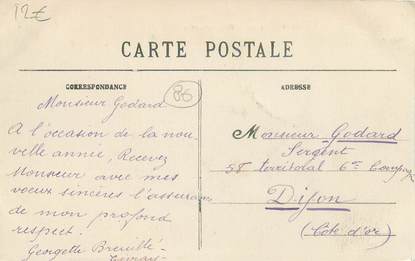 12€
CARTE POSTALE
CORRESPONDANCE
ADRESSE
86
Monsieur Godard
A l'occasion de la nou
velle année, Recevez
Monsieur avec mes
voeux sincères l'assuran
de mon profond
respect.
Georgette
Monsieur Godard
Sergent
58 territotal 6e Compag
Dijon
(Côte d'or)